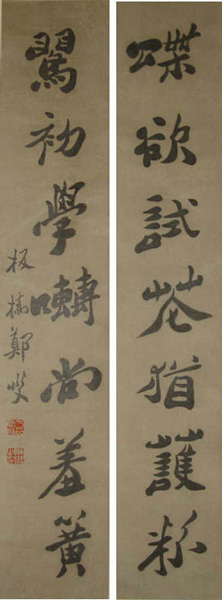 蝶欲試花猶護粉
鸎初學囀尚羞簧
板橋鄭燮